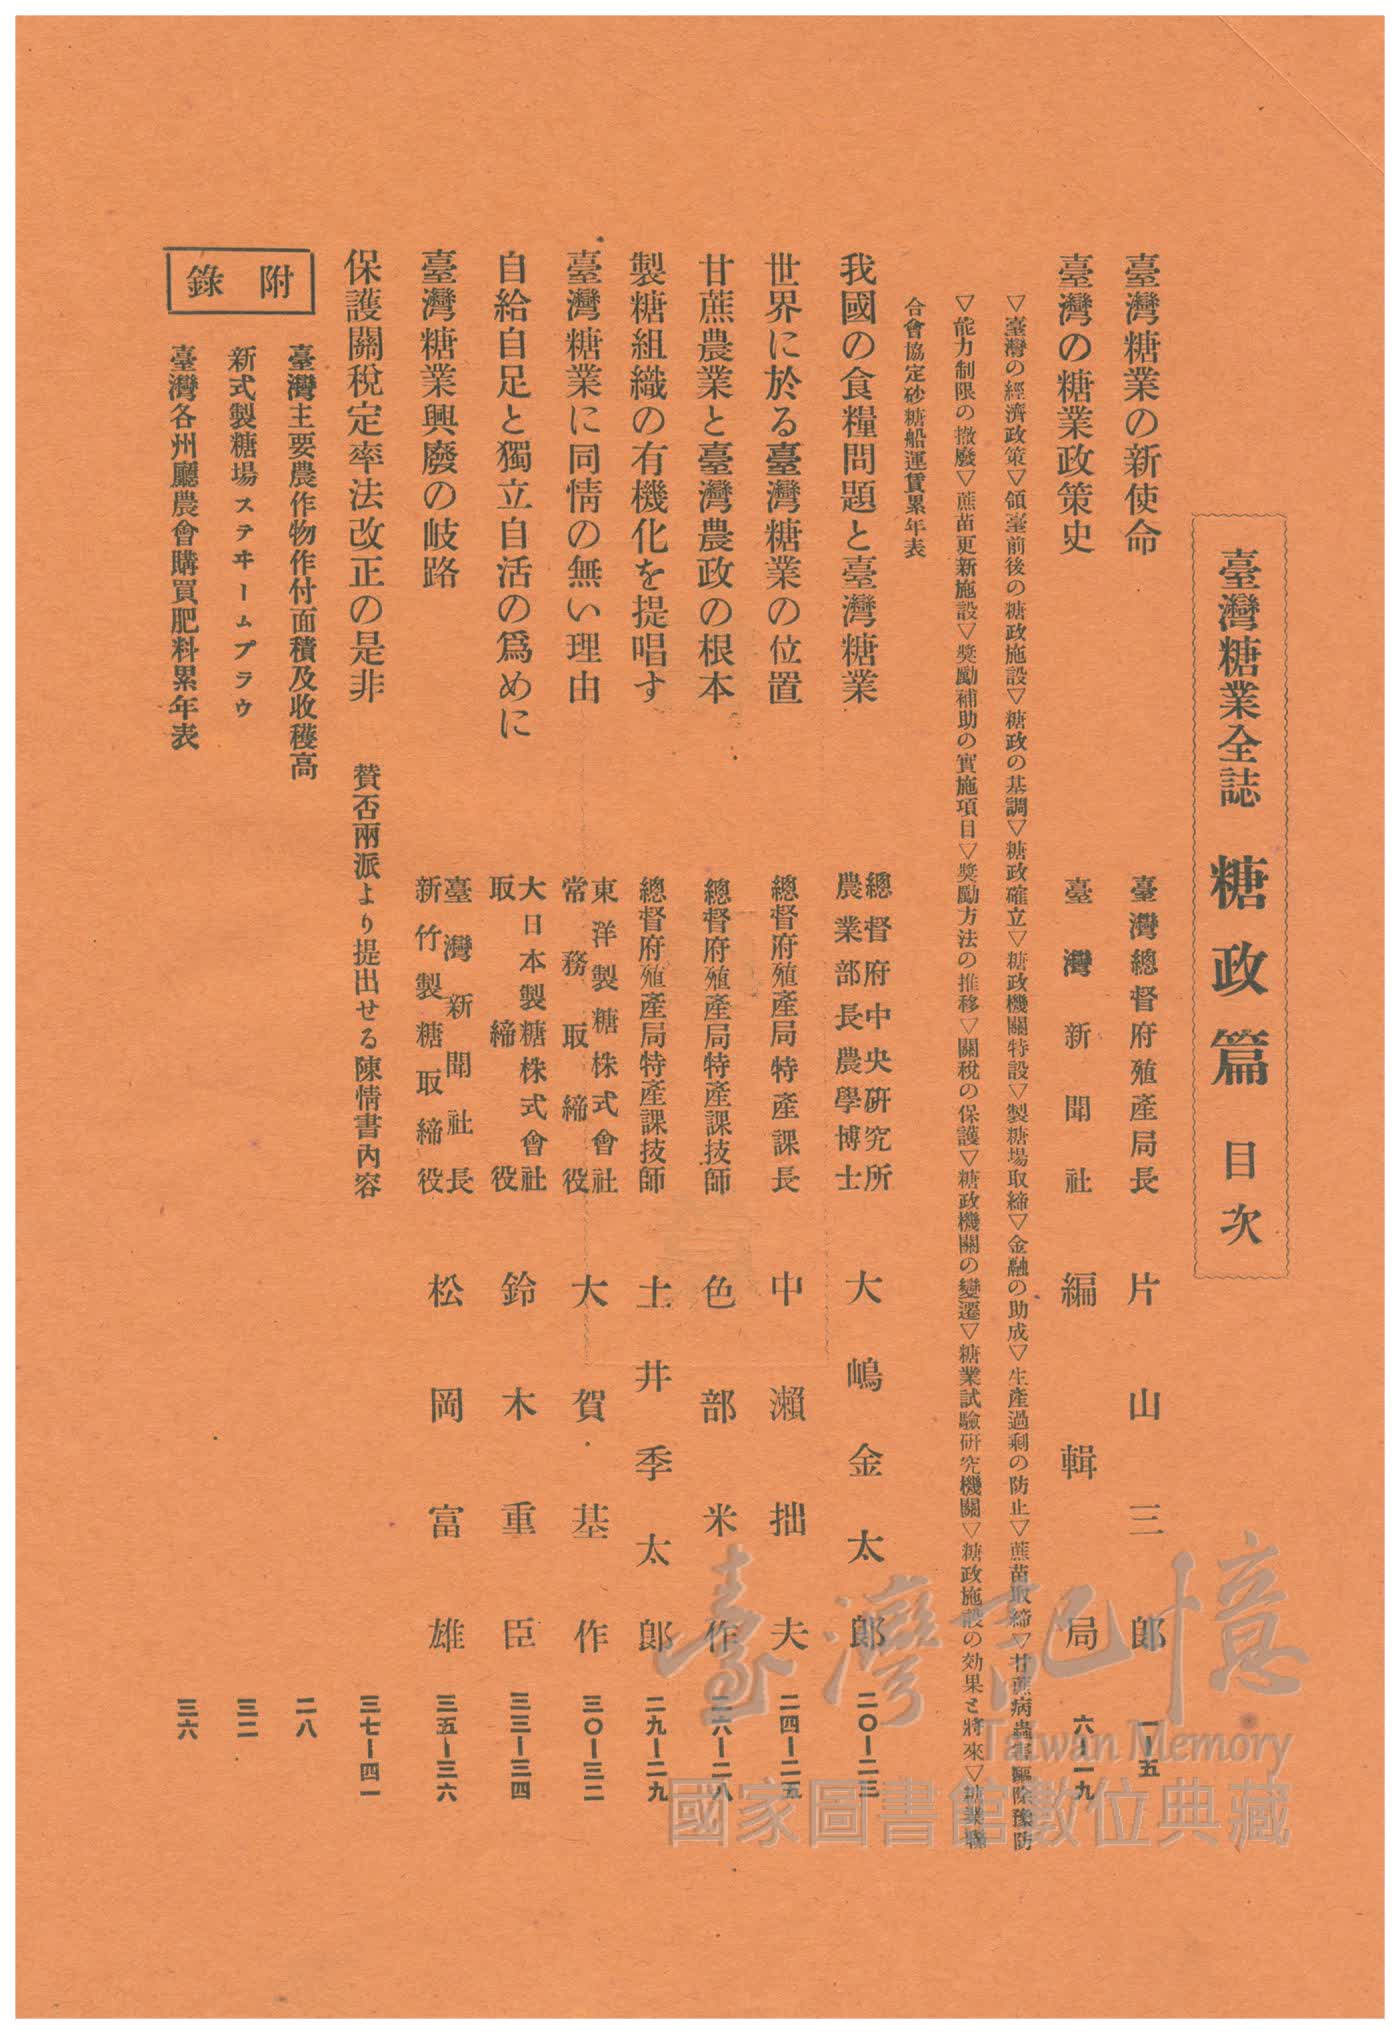 臺灣糖業全誌 糖政篇 目次
臺灣糖業の新使命 臺灣總督府殖產局長 片山三郎 一―五
臺灣の糖業政策史 臺灣新聞社 編輯局 六―一九
▽臺灣の經濟政策▽領臺前後の糖政施設▽糖政の基調▽糖政確立▽糖政機關特設▽製糖場取締▽金融の助成▽生產過剩の防止▽蔗苗取締▽甘蔗病蟲害驅除豫防
▽能力制限の撤廢▽蔗苗更新施設▽獎勵補助の實施項目▽獎勵方法の推移▽關稅の保護▽糖政機關の變遷▽糖業試驗硏究機關▽糖政施設の効果と將來▽糖業聯
合會協定砂糖船運賃累年表
我國の食糧問題と臺灣糖業 總督府中央硏究所農業部長農學博士 大嶋金太郎 二〇―二三
世界に於る臺灣糖業の位置 總督府殖產局特產課長 中瀨拙夫 二四―二五
甘蔗農業と臺灣農政の根本 總督府殖產局特產課技師 色部米作 二六―二八
製糖組織の有機化を提唱す 總督府殖產局特產課技師 土井季太郎 二九―二九
臺灣糖業に同情の無い理由 東洋製糖株式會社常務取締役 大賀基作 三〇―三二
自給自足と獨立自活の爲めに 大日本製糖株式會社取締役 鈴木重臣 三三―三四
臺灣糖業興廢の岐路 臺灣新聞社長新竹製糖取締役 松岡富雄 三五―三六
保護關稅定率法改正の是非 贊否兩派より提出せる陳情書內容 三七―四一
附錄
臺灣主要農作物作付面積及收穫高 二八
新式製糖場ステヰームプラウ 三二
臺灣各州廳農會購買肥料累年表 三六
臺灣記憶
Taiwan Memory
國家圖書館數位典藏